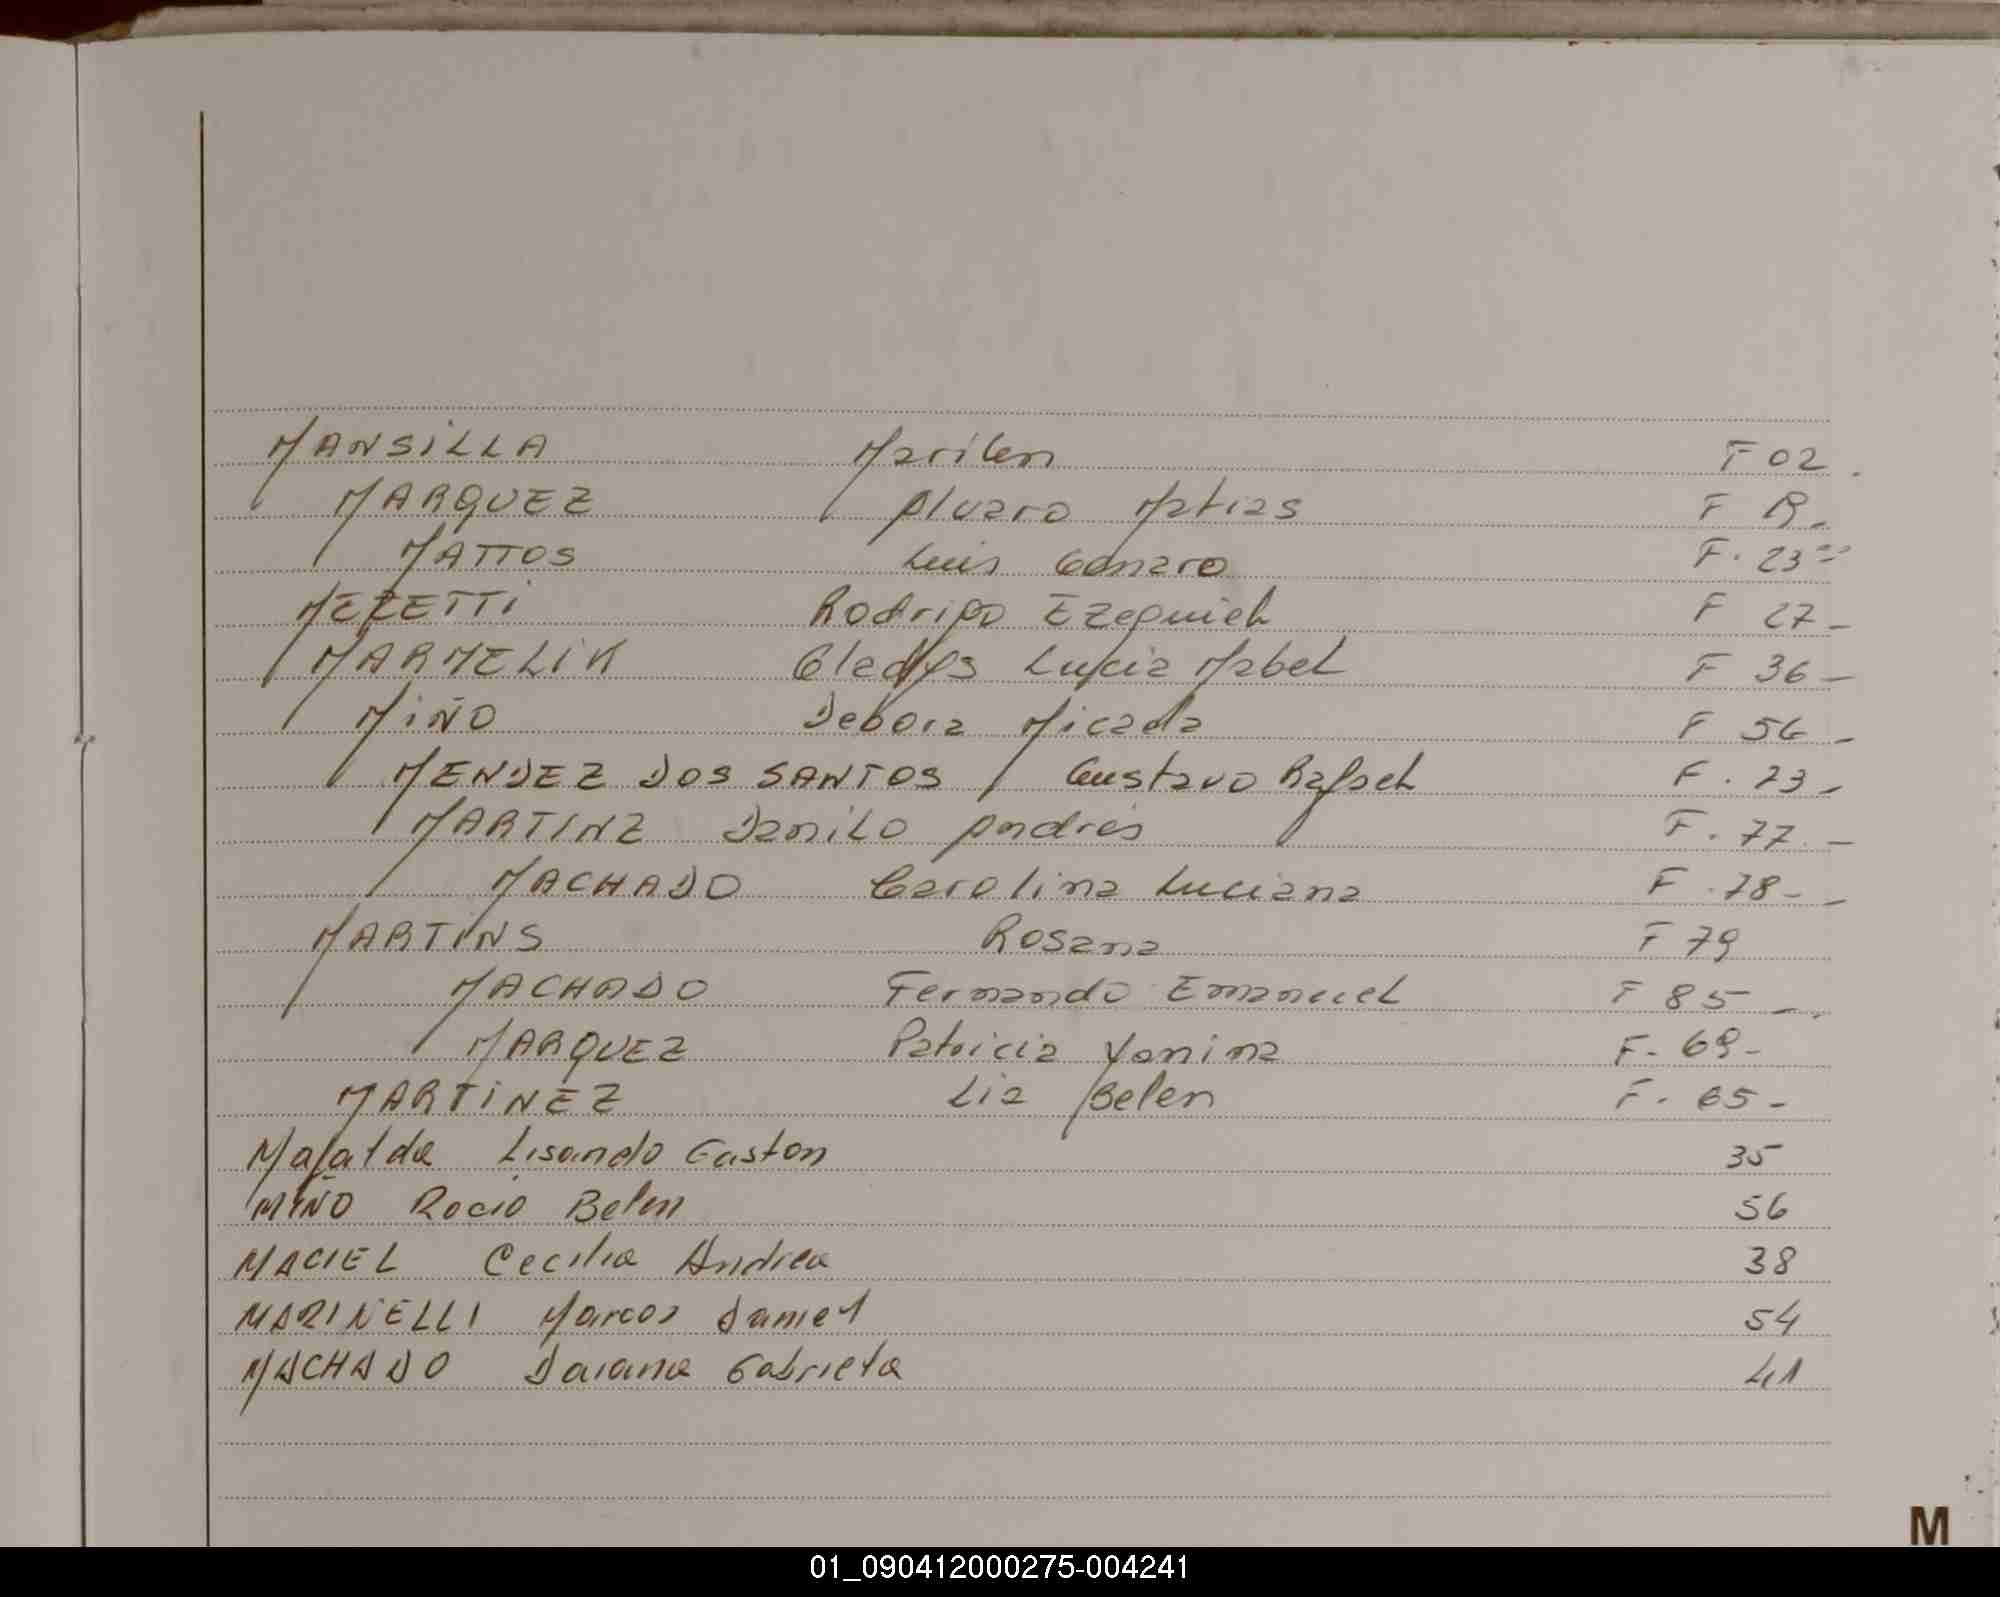 MANSiLLA Marilen F 02.
MARQUEZ Alvaro Matias F 19-
MATTOS Luis Genaro F. 23=
MEZETTi Rodrigo Ezequiel F 27-
MARMELiK Gladys Lucia Mabel F 36-
MiÑO Debora Micaela F 56-
MENDEZ DOS SANTOS Gustavo Rafael F. 73-
MARTINZ Danilo Andres F. 77.-
MACHADO Carolina Luciana F. 78--
MARTiNS Rosana F 79
MACHADO Fernando Emanuel F 85-.
MARQUEZ Patricia Yanina F- 69-
MARTiNEZ Lia Belen F. 65-
Mafalda Lisando Gaston 35
MIÑO Rocio Belen 56
MACIEL Cecilia Andrea 38
MARINELLI Marcos Daniel 54
MACHADO Daiana Gabriela 41
M
01_090412000275-004241